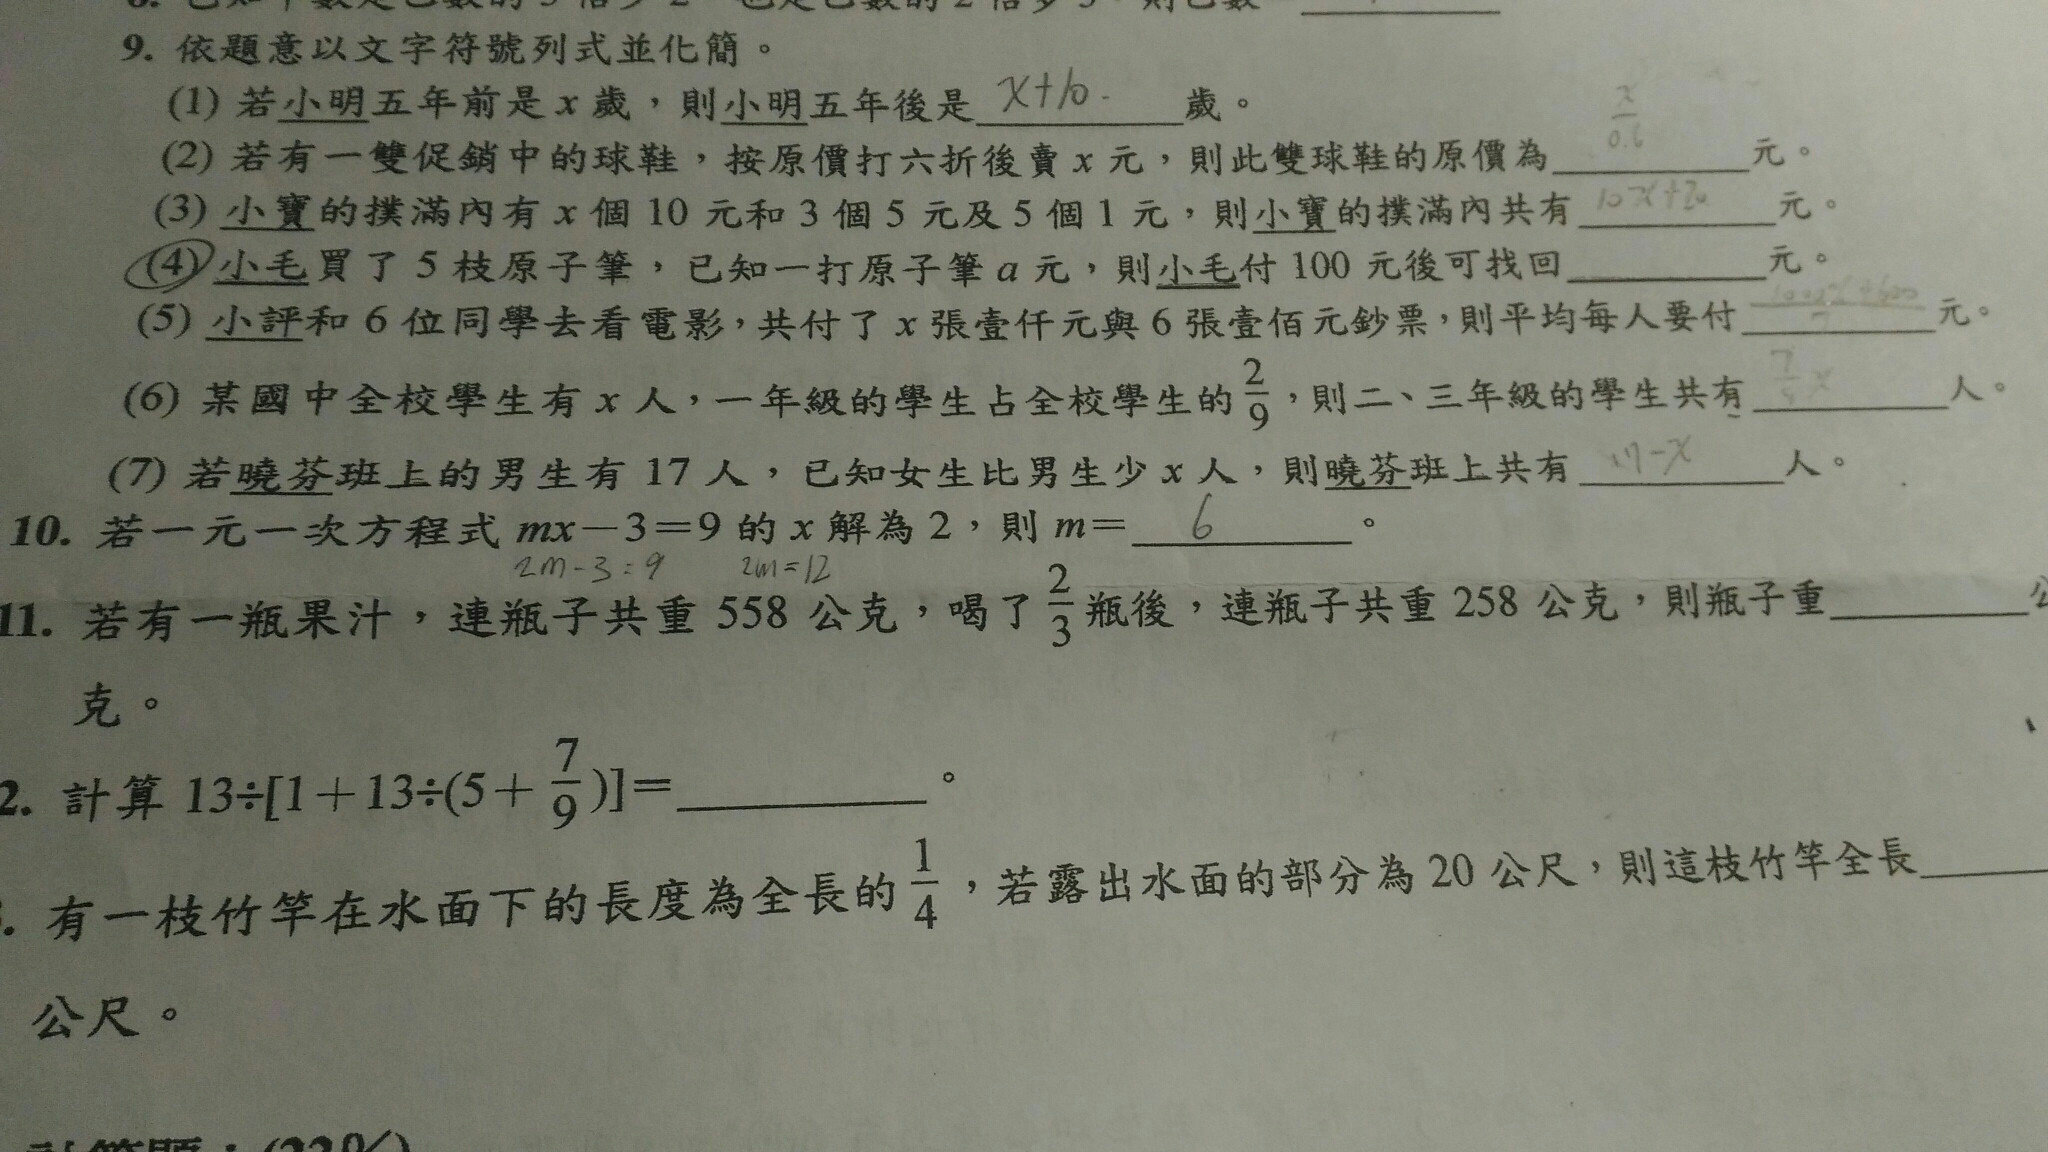 9. 依題意以文字符號列式並化簡。
(1) 若小明五年前是 x 歲，則小明五年後是 x+10 歲。
(2) 若有一雙促銷中的球鞋，按原價打六折後賣 x 元，則此雙球鞋的原價為 x/0.6 元。
(3) 小寶的撲滿內有 x 個 10 元和 3 個 5 元及 5 個 1 元，則小寶的撲滿內共有 10x+20 元。
(4) 小毛買了 5 枝原子筆，已知一打原子筆 a 元，則小毛付 100 元後可找回______元。
(5) 小評和 6 位同學去看電影，共付了 x 張壹仟元與 6 張壹佰元鈔票，則平均每人要付 1000x+600/7 元。
(6) 某國中全校學生有 x 人，一年級的學生占全校學生的 2/9，則二、三年級的學生共有 7/9 x 人。
(7) 若曉芬班上的男生有 17 人，已知女生比男生少 x 人，則曉芬班上共有 17-x 人。
10. 若一元一次方程式 mx－3＝9 的 x 解為 2，則 m＝ 6 。
2m-3=9 2m=12
11. 若有一瓶果汁，連瓶子共重 558 公克，喝了 2/3 瓶後，連瓶子共重 258 公克，則瓶子重______公
克。
2. 計算 13÷[1＋13÷(5＋7/9)]＝______。
. 有一枝竹竿在水面下的長度為全長的 1/4，若露出水面的部分為 20 公尺，則這枝竹竿全長______
公尺。